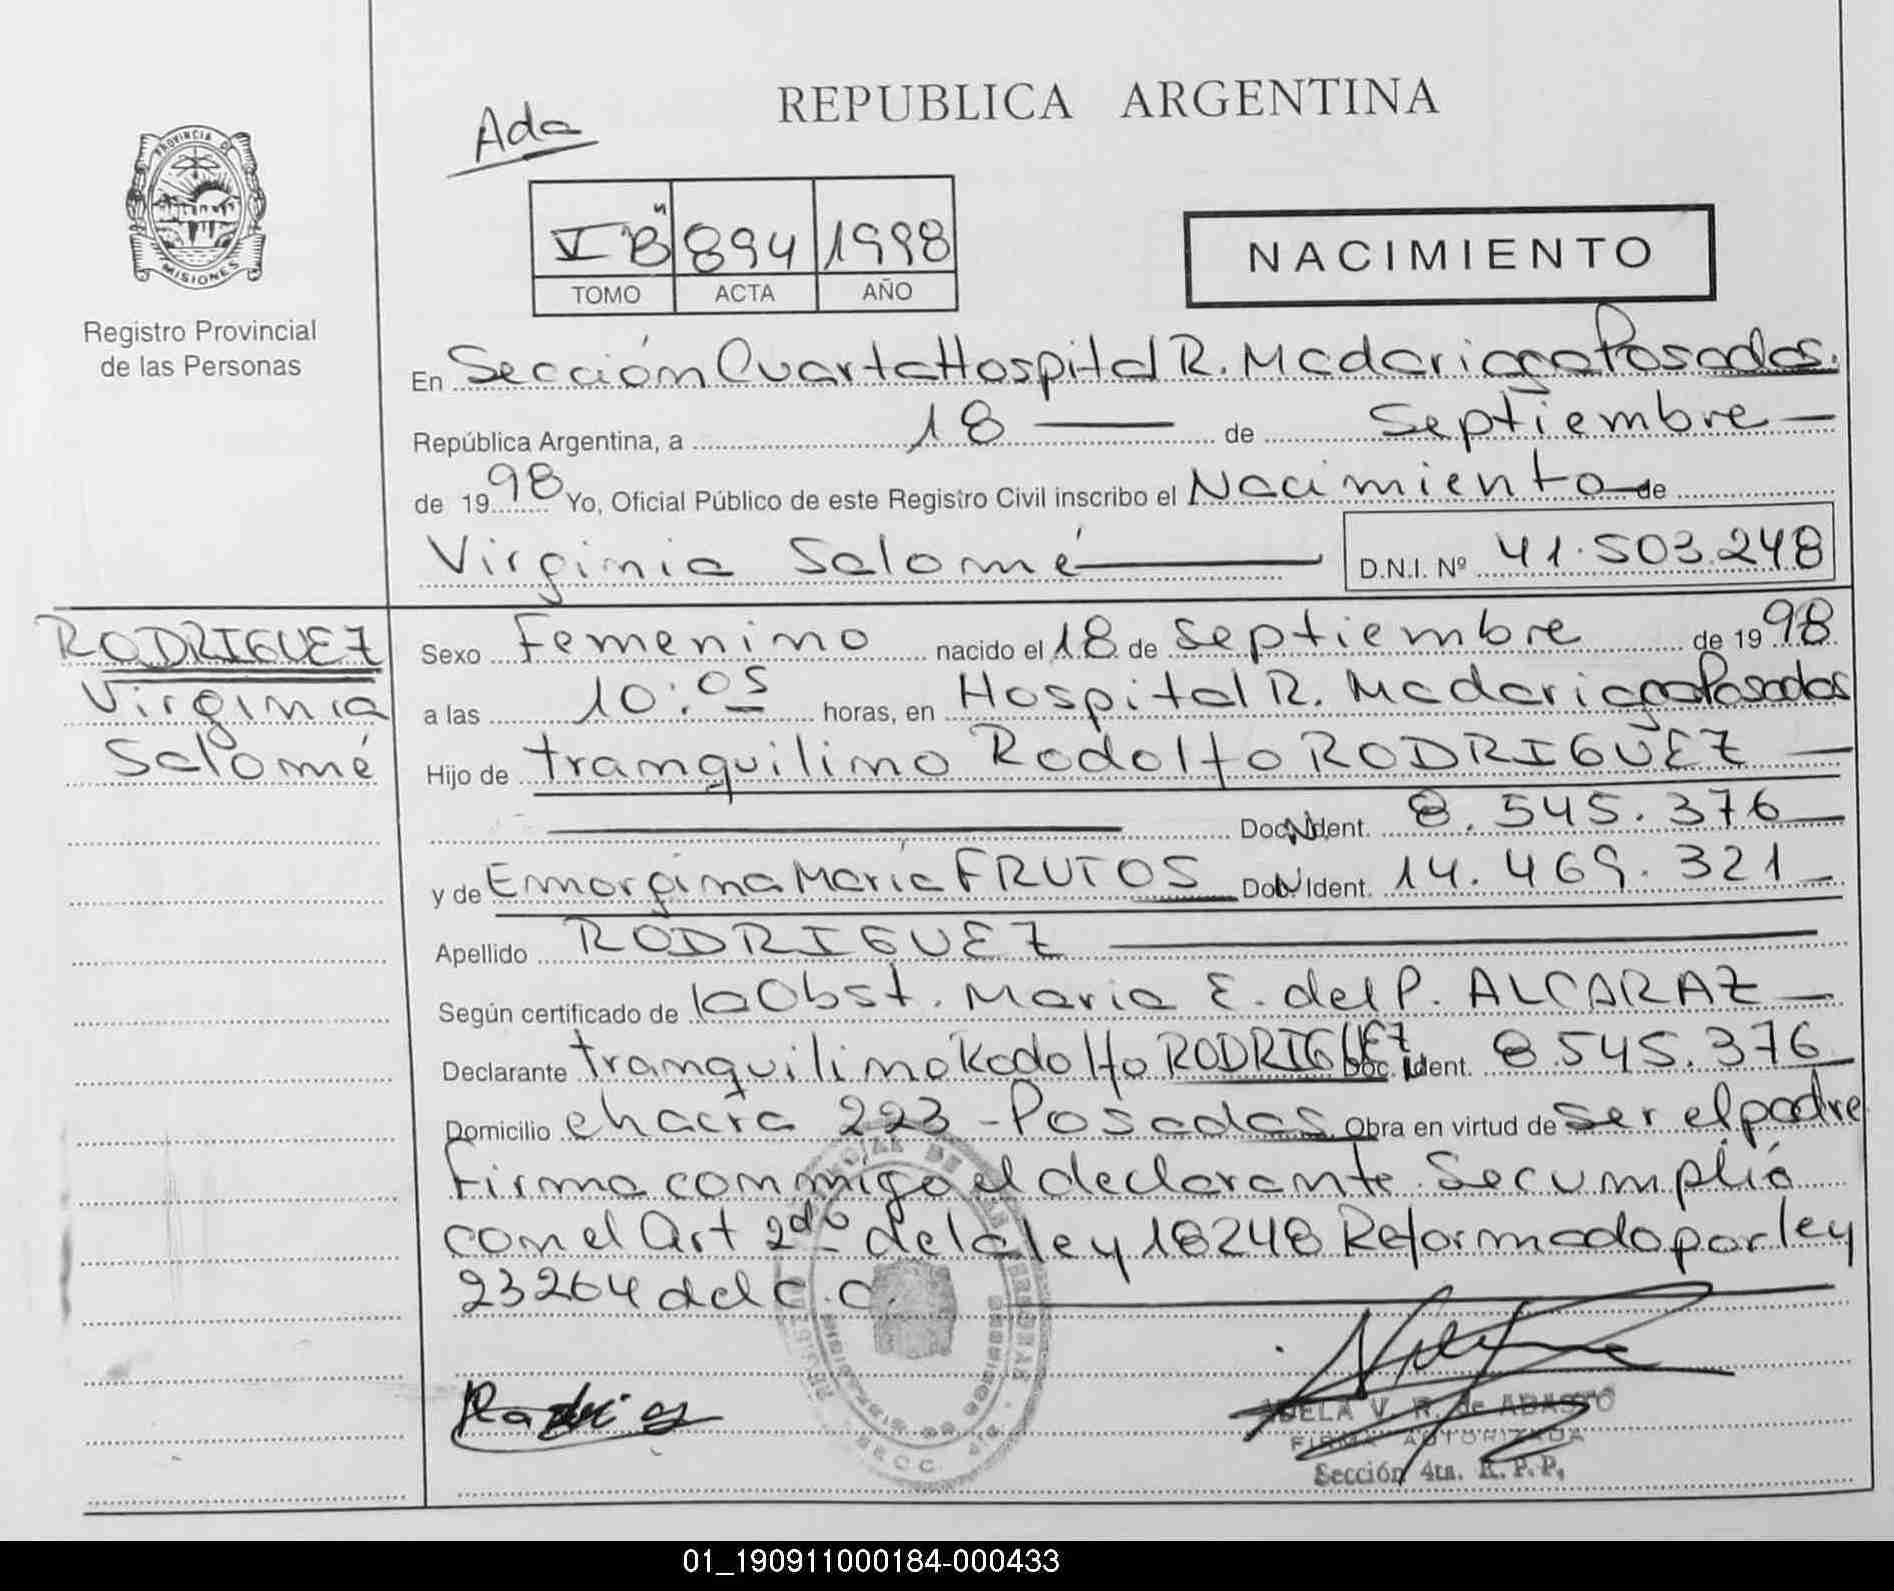 REPUBLICA ARGENTINA
Ada
PROVINCIA DE
MISIONES
Registro Provincial
de las Personas
V B" 894 1998
TOMO ACTA AÑO
NACIMIENTO
En Sección Cuarta Hospital R. Madariaga Posadas.
República Argentina, a 18 de Septiembre
de 1998 Yo, Oficial Público de este Registro Civil inscribo el Nacimiento de
Virginia Salomé
D.N.I. Nº 41.503.248
RODRIGUEZ
Virginia
Salomé
Sexo Femenino nacido el 18 de Septiembre de 1998
a las 10:05 horas, en Hospital R. Madariaga Posadas
Hijo de tranquilino Rodolfo RODRIGUEZ
Doc. Ident. 8.545.376
y de María FRUTOS Doc. Ident. 14.469.321
Apellido RODRIGUEZ
Según certificado de la Obst. Maria E. del P. ALCARAZ
Declarante tranquilino Rodolfo RODRIGUEZ Doc. Ident. 8.545.376
Domicilio chacra 223 - Posadas Obra en virtud de ser el padre
Firma conmigo el declarante. Se cumplió
con el Art 2do de la ley 18248 Reformado por ley
23264 del C.C.
ADELA V. R. de
FIRMA AUTORIZADA
Sección 4ta. R.P.P.
01_190911000184-000433